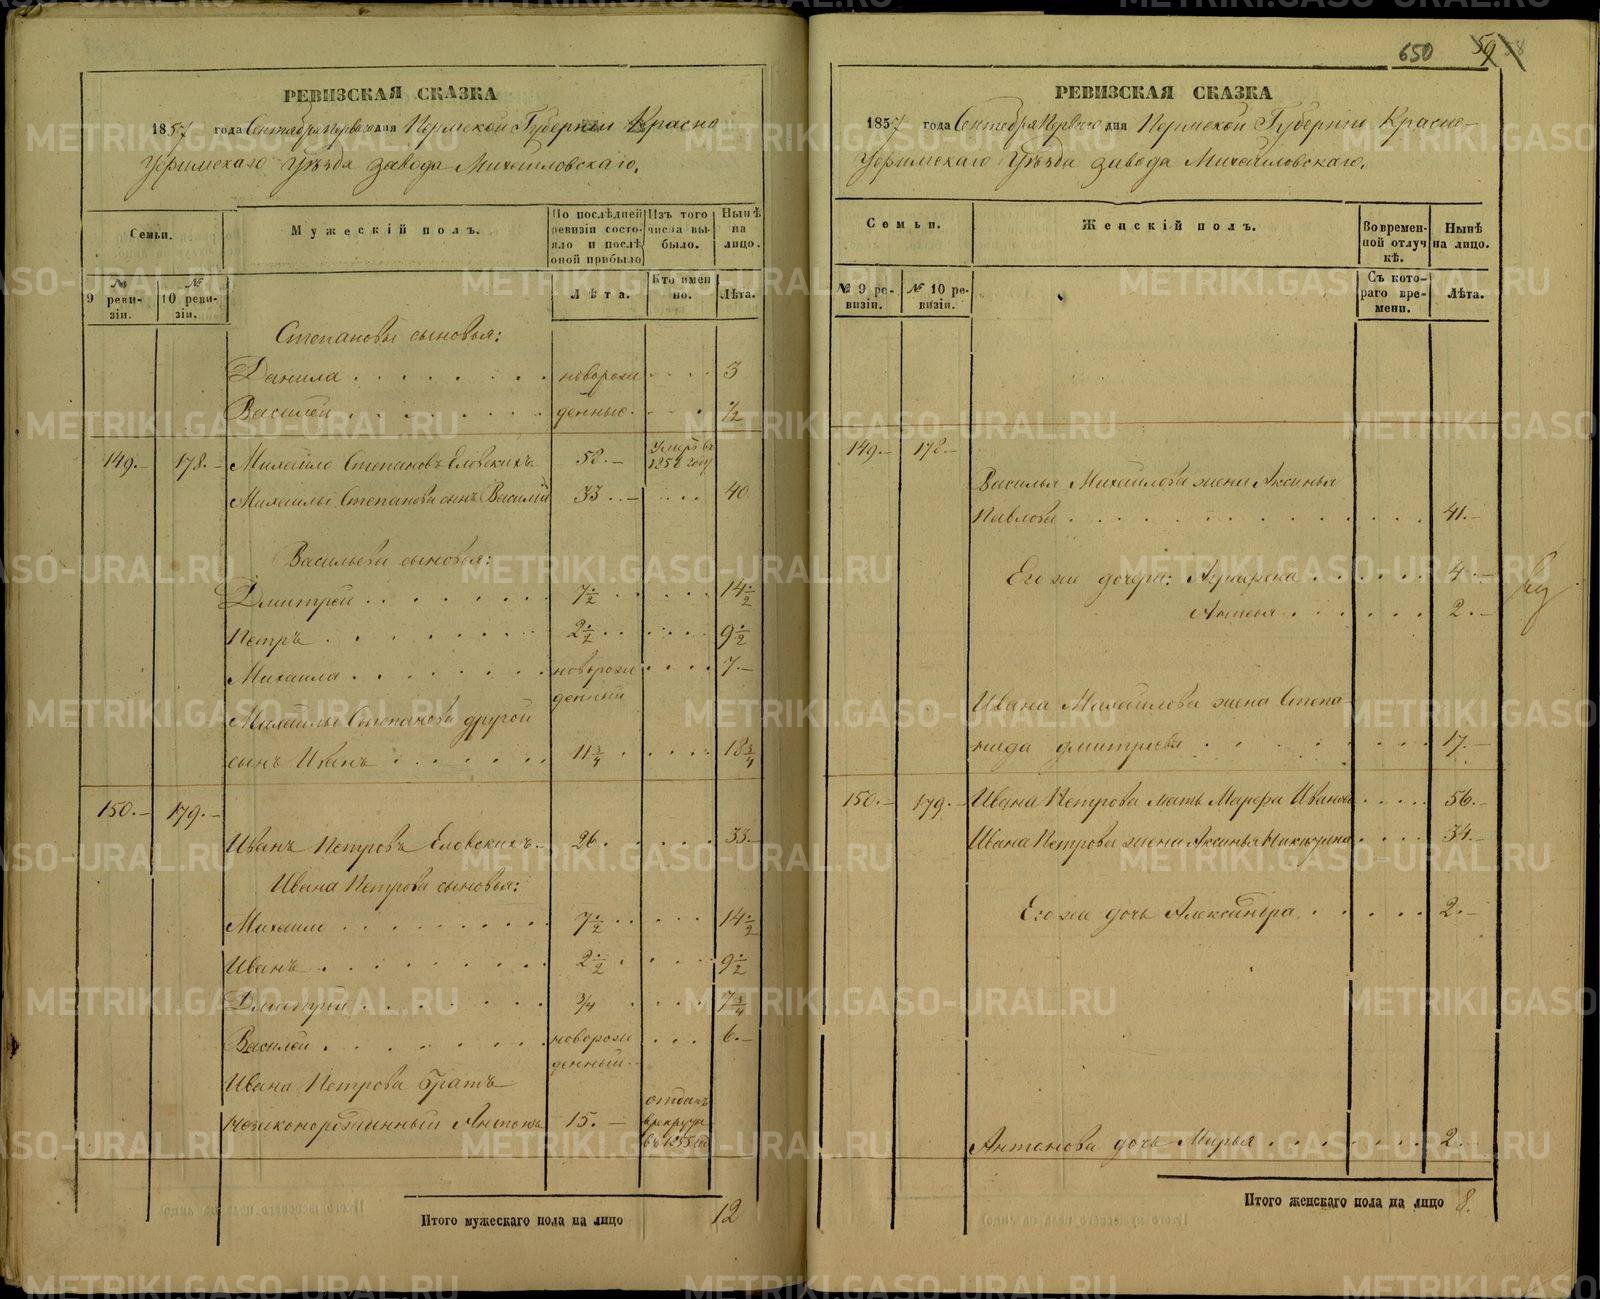 РЕВИЗСКАЯ СКАЗКА
1857 года Сентября перваго дня Пермской Губерніи Красно
уфимскаго Уѣзда завода Михайловскаго.
Семьи.
Мужескій полъ.
По послѣдней ревизіи состояло и послѣ оной прибыло
Изъ того числа выбыло.
Нынѣ на лицо.
№ 9 ревизіи.
№ 10 ревизіи.
Лѣта.
Кто именно.
Лѣта.
Степановы сыновья:
Данила новорож 3
Василей денные. ½
149. 178. Михайло Степановъ Еловскихъ 58. Умеръ въ
185 году
Михайлы Степанова сынъ Василій 33 40
Васильевы сыновья:
Дмитрей 7½ 14½
Петръ 2½ 9½
Михаила новорож 7
денный
Михайлы Степанова другой
сынъ Иванъ 11¾ 18¾
150. 179.
Иванъ Петровъ Еловскихъ 26 33
Ивана Петрова сыновья:
Михайло 7½ 14½
Иванъ 2½ 9½
Дмитрей ¾ 7¾
Василей новорож 6
денный
Ивана Петрова братъ
Антонъ 15. отданъ
в рекруты
въ 1855 го
Итого мужескаго пола на лицо 12
650 59
РЕВИЗСКАЯ СКАЗКА
1857 года Сентября перваго дня Пермской Губерніи Красно-
уфимскаго Уѣзда завода Михайловскаго.
Семьи.
Женскій полъ.
Во временной отлучкѣ.
Нынѣ на лицо.
№ 9 ревизіи.
№ 10 ревизіи.
Съ котораго времени.
Лѣта.
149. 178.
Василья Михайлова жена Аксинья
Павлова 41.
Его же дочери: Аграфена 4.
Анисья 2.
Ивана Михайлова жена Степа-
нида Дмитриева 17.
150. 179. Ивана Петрова мать Марфа Иванова 56.
Ивана Петрова жена Аксинья Никифорова 34.
Его же дочь Александра 2.
Антонова дочь Марья 2.
Итого женскаго пола на лицо 8.
METRIKI.GASO-URAL.RU